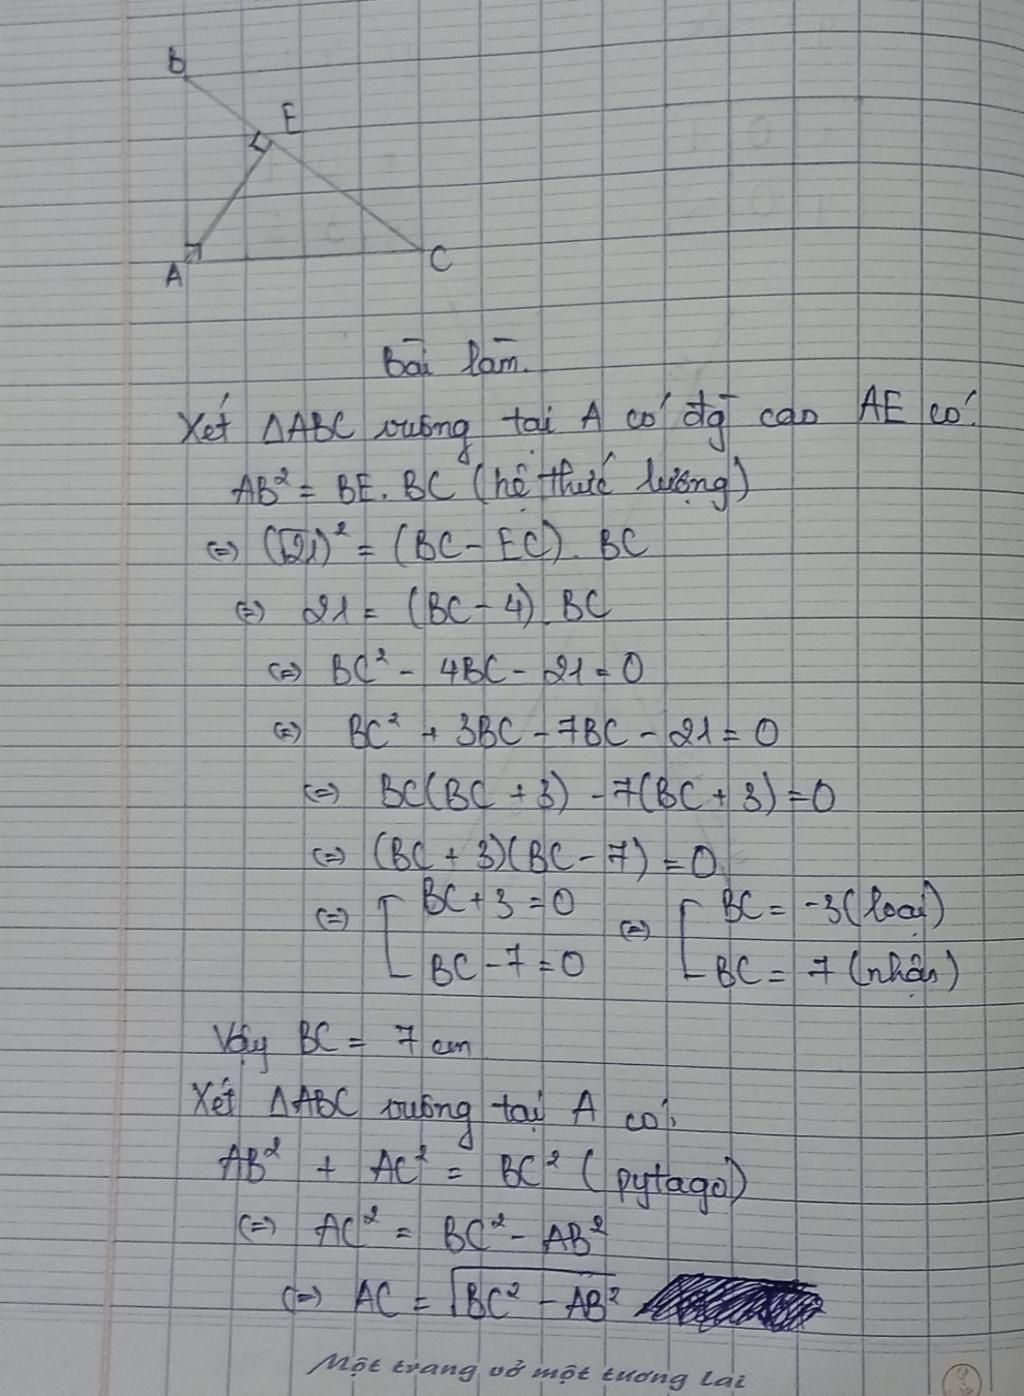 B
E
A
C
Bài làm.
Xét ΔABC vuông tại A có đg cao AE có:
AB² = BE. BC (hệ thức lượng)
<=> (√21)² = (BC - EC). BC
<=> 21 = (BC - 4). BC
<=> BC² - 4BC - 21 = 0
<=> BC² + 3BC - 7BC - 21 = 0
<=> BC(BC + 3) - 7(BC + 3) = 0
<=> (BC + 3)(BC - 7) = 0
<=> [ BC + 3 = 0 <=> [ BC = -3 (loại)
BC - 7 = 0 BC = 7 (nhận)
Vậy BC = 7 cm
Xét ΔABC vuông tại A có:
AB² + AC² = BC² (pytago)
<=> AC² = BC² - AB²
<=> AC = √BC² - AB²
Một trang vở một tương lai